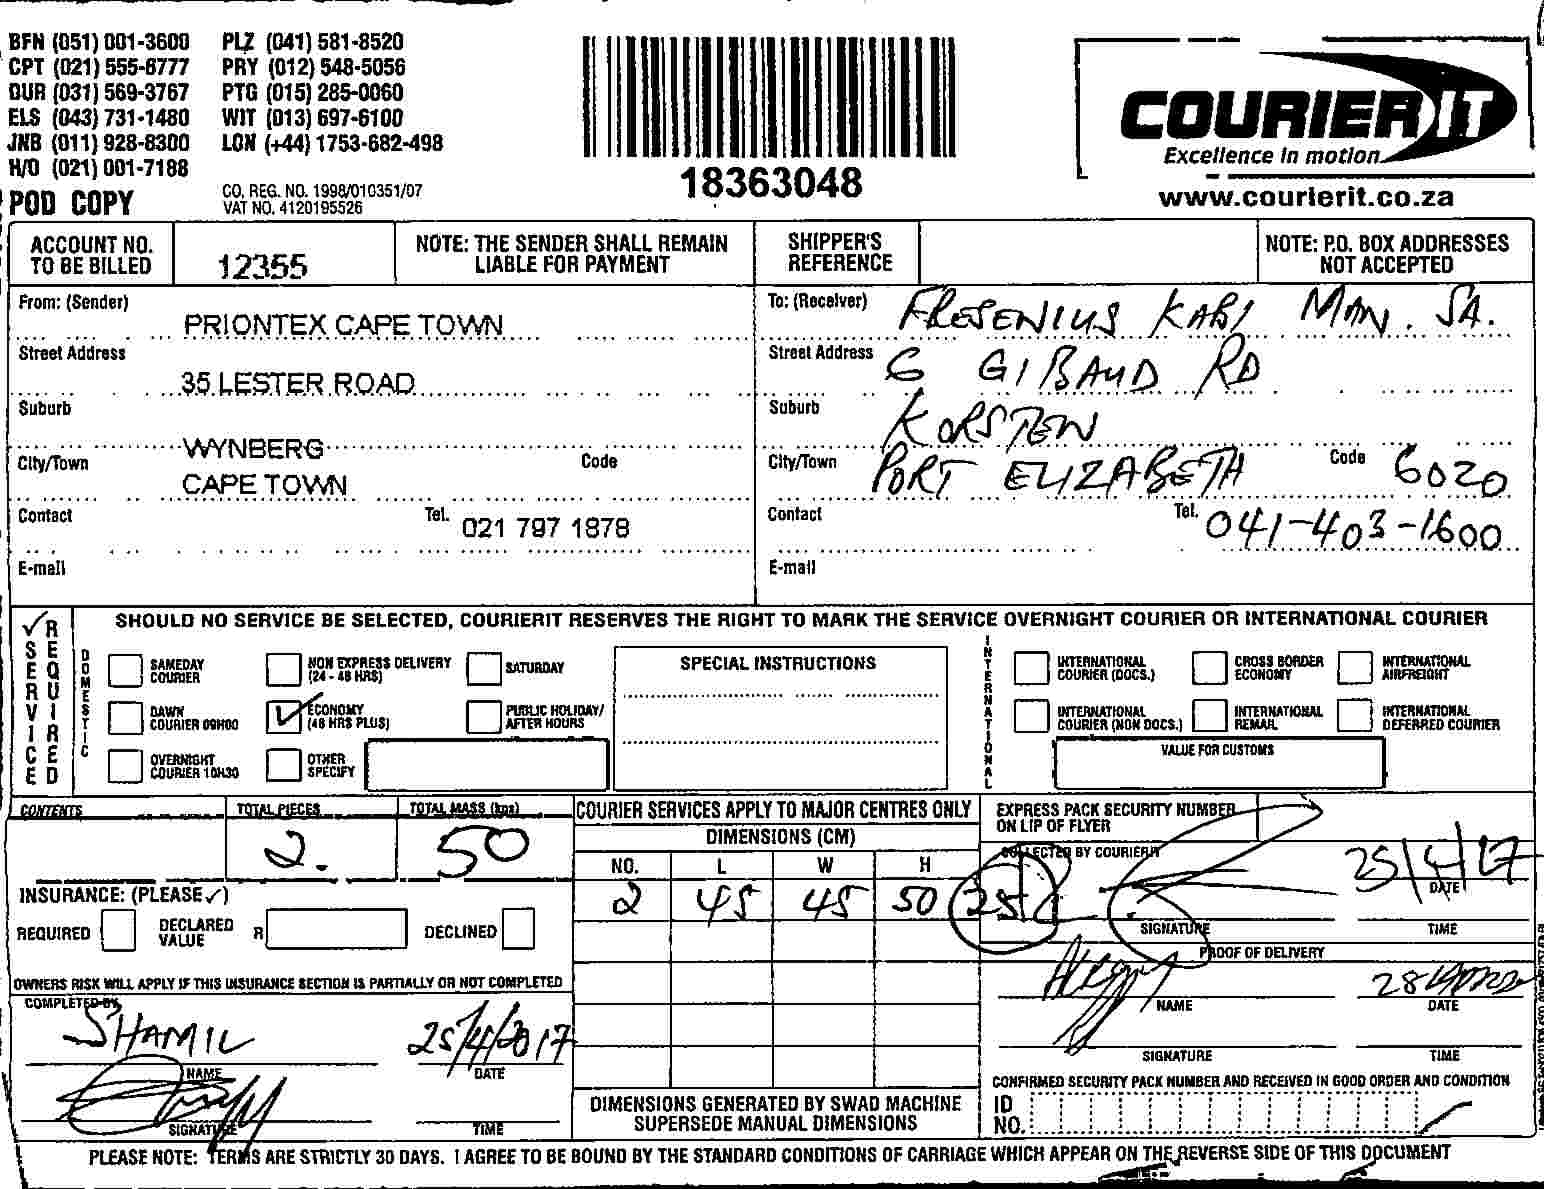 BFN (051) 001-3600 PLZ (041) 581-8520
CPT (021) 555-6777 PRY (012) 548-5056
DUR (031) 569-3767 PTG (015) 285-0060
ELS (043) 731-1480 WIT (013) 697-6100
JNB (011) 928-8300 LON (+44) 1753-682-498
H/O (021) 001-7188
POD COPY
CO. REG. NO. 1998/010351/07
VAT NO. 4120195526
18363048
COURIER IT
Excellence in motion
www.courierit.co.za
ACCOUNT NO. TO BE BILLED 12355
NOTE: THE SENDER SHALL REMAIN LIABLE FOR PAYMENT
SHIPPER'S REFERENCE
NOTE: P.O. BOX ADDRESSES NOT ACCEPTED
From: (Sender) PRIONTEX CAPE TOWN
Street Address 35 LESTER ROAD
Suburb WYNBERG
City/Town CAPE TOWN Code
Contact Tel. 021 797 1878
E-mail
To: (Receiver) FRESENIUS KABI MAN. SA.
Street Address 6 GIBAUD RD
Suburb KORSTEN
City/Town PORT ELIZABETH Code 6020
Contact Tel. 041-403-1600
E-mail
✓ SERVICE REQUIRED
SHOULD NO SERVICE BE SELECTED, COURIERIT RESERVES THE RIGHT TO MARK THE SERVICE OVERNIGHT COURIER OR INTERNATIONAL COURIER
DOMESTIC
SAMEDAY COURIER
NON EXPRESS DELIVERY (24 - 48 HRS)
SATURDAY
DAWN COURIER 09H00
✓ ECONOMY (48 HRS PLUS)
PUBLIC HOLIDAY/ AFTER HOURS
OVERNIGHT COURIER 10H30
OTHER SPECIFY
SPECIAL INSTRUCTIONS
INTERNATIONAL
INTERNATIONAL COURIER (DOCS.)
CROSS BORDER ECONOMY
INTERNATIONAL AIRFREIGHT
INTERNATIONAL COURIER (NON DOCS.)
INTERNATIONAL REMAIL
INTERNATIONAL DEFERRED COURIER
VALUE FOR CUSTOMS
CONTENTS
TOTAL PIECES 2.
TOTAL MASS (kgs) 50
INSURANCE: (PLEASE ✓)
REQUIRED DECLARED VALUE R DECLINED
OWNERS RISK WILL APPLY IF THIS INSURANCE SECTION IS PARTIALLY OR NOT COMPLETED
COMPLETED BY
SHAMIL 25/4/2017
NAME DATE
SIGNATURE TIME
COURIER SERVICES APPLY TO MAJOR CENTRES ONLY
DIMENSIONS (CM)
NO. L W H
2 45 45 50
DIMENSIONS GENERATED BY SWAD MACHINE
SUPERSEDE MANUAL DIMENSIONS
EXPRESS PACK SECURITY NUMBER
ON LIP OF FLYER
COLLECTED BY COURIERIT
25/4/17
DATE
SIGNATURE TIME
PROOF OF DELIVERY
NAME DATE
SIGNATURE TIME
CONFIRMED SECURITY PACK NUMBER AND RECEIVED IN GOOD ORDER AND CONDITION
ID NO.
PLEASE NOTE: TERMS ARE STRICTLY 30 DAYS. I AGREE TO BE BOUND BY THE STANDARD CONDITIONS OF CARRIAGE WHICH APPEAR ON THE REVERSE SIDE OF THIS DOCUMENT